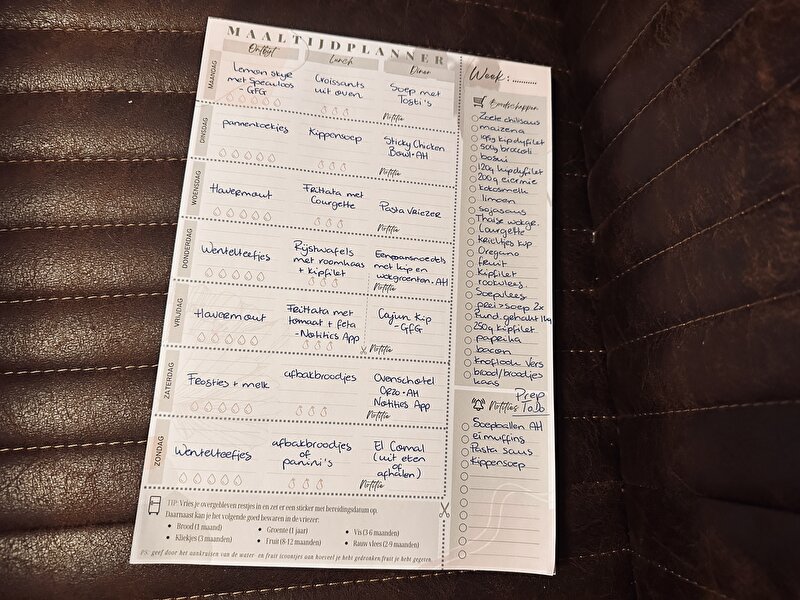 MAALTIJDPLANNER
Ontbijt
Lunch
Diner
MAANDAG
Lemon skyr
met Speculoos
- GFG
Croissants
uit oven
Soep met
Tosti's
Notitie
DINSDAG
pannenkoekjes
Kippensoep
Sticky Chicken
Bowl • AH
Notitie
WOENSDAG
Havermout
Frittata met
Courgette
Pasta Vriezer
Notitie
DONDERDAG
Wentelteefjes
Rijstwafels
met roomkaas
+ kipfilet
Eenpansnoedels
met kip en
wokgroenten. AH
VRIJDAG
Havermout
Frittata met
tomaat + feta
- Notities App
Cajun Kip
- GFG
Notitie
ZATERDAG
Frosties + melk
afbakbroodjes
Ovenschotel
Orzo • AH
Notities App
Notitie
ZONDAG
Wentelteefjes
afbakbroodjes
of
panini's
El Comal
(uit eten
of
afhalen)
Notitie
TIP: Vries je overgebleven restjes in en zet er een sticker met bereidingsdatum op.
Daarnaast kan je het volgende goed bewaren in de vriezer:
• Brood (1 maand)
• Groente (1 jaar)
• Vis (3-6 maanden)
• Kliekjes (3 maanden)
• Fruit (8-12 maanden)
• Rauw vlees (2-9 maanden)
PS: geef door het aankruisen van de water- en fruit icoontjes aan hoeveel je hebt gedronken/fruit je hebt gegeten.
Week: ..........
Boodschappen
Zoete chilisaus
maizena
kipdyfilet
500g broccoli
bosui
120g kipdyfilet
200g eiermie
kokosmelk
limoen
sojasaus
Thaise wokgr.
Courgette
krieltjes kip
Oregano
fruit
Kipfilet
rookvlees
Soepvlees
prei > soep 2x
rund. gehakt 1kg
250g kipfilet
paprika
bacon
knoflook vers
brood/broodjes
kaas
Notities
Prep
ToDo
Soepballen AH
eimuffins
Pasta saus
Kippensoep